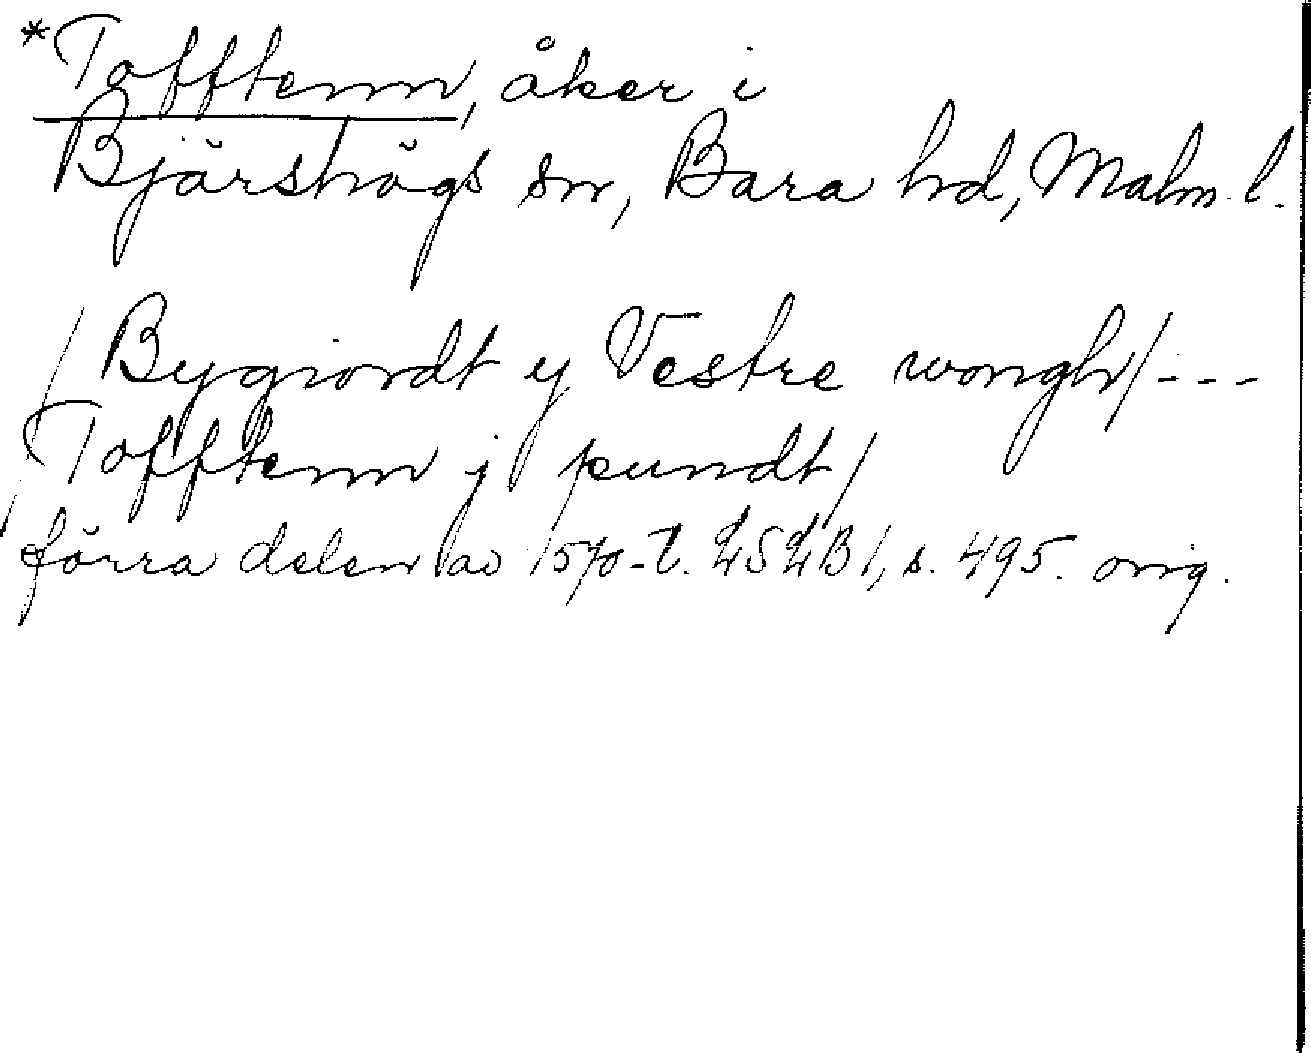 *Tofftenn, åker i
Bjärshögs sn, Bara hd, Malm. l.
/Bygiordt y Vestre wongh/---
Tofftenn j pundt/
förra delen av 1570-t. LSLB 1, s. 495. orig.